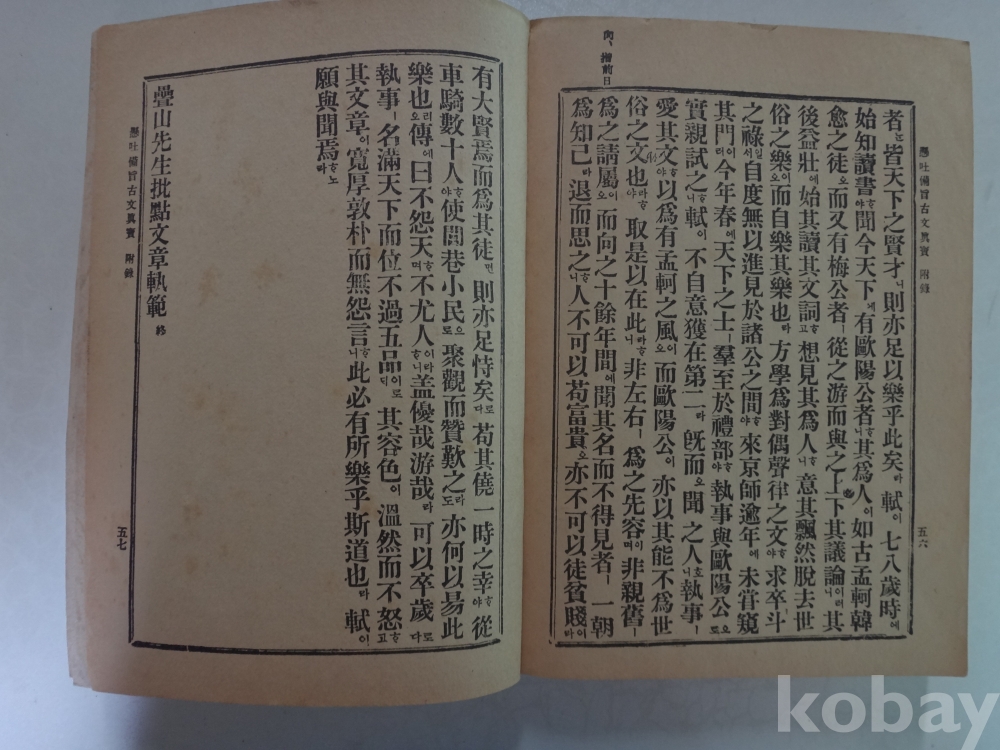 向、猶前日
者는皆天下之賢才ㅣ니則亦足以樂乎此矣라軾이七八歲時에
始知讀書하야聞今天下에有歐陽公者하니其爲人이如古孟軻韓
愈之徒오而又有梅公者ㅣ從之游而與之上下其議論이러니其
後益壯에始其讀其文詞하고想見其爲人하니意其飄然脫去世
俗之樂이오而自樂其樂也라方學爲對偶聲律之文하야求卒斗
之祿일서自度無以進見於諸公之間하야來京師逾年에未甞窺
其門이러니今年春에天下之士ㅣ羣至於禮部하야執事與歐陽公으로
實親試之하니軾이不自意獲在第二라旣而오聞之人호니執事ㅣ
愛其文하야以爲有孟軻之風이오而歐陽公이亦以其能不爲世
俗之文也라하야取是以在此하니非左右ㅣ爲之先容이며非親舊ㅣ
爲之請屬이오而向之十餘年間에聞其名而不得見者ㅣ一朝
爲知己라退而思之하니人不可以苟富貴오亦不可以徒貧賤이라
懸吐備旨古文眞寶 附錄 五六
有大賢焉而爲其徒면則亦足恃矣로다苟其僥一時之幸하야從
車騎數十人하야使閭巷小民으로聚觀而贊歎之라도亦何以易此
樂也리오傳에曰不怨天하며不尤人이라하니盖優哉游哉라可以卒歲로다
執事ㅣ名滿天下而位不過五品이로되其容色이溫然而不怒하고
其文章이寬厚敦朴而無怨言하니此必有所樂乎斯道也라軾이
願與聞焉하노라
疊山先生批點文章軌範 終
懸吐備旨古文眞寶 附錄 五七
kobay